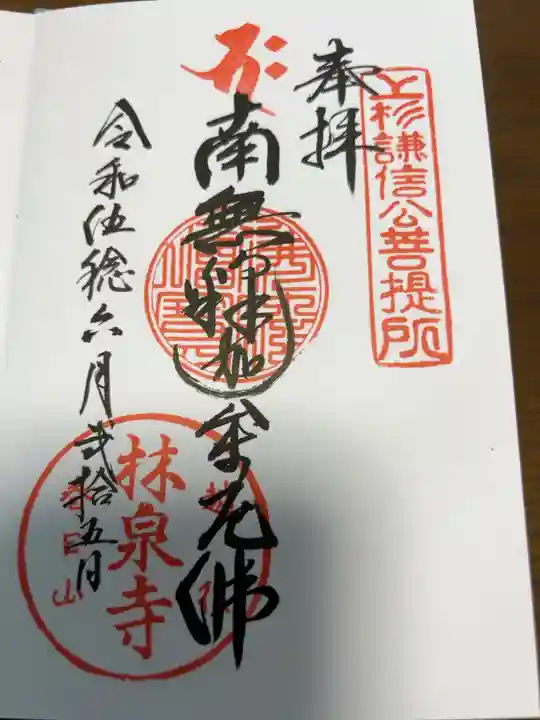 上杉謙信公菩提所
奉拝
南無釈迦牟尼佛
林泉寺
春日山
令和伍稔六月弐拾五日